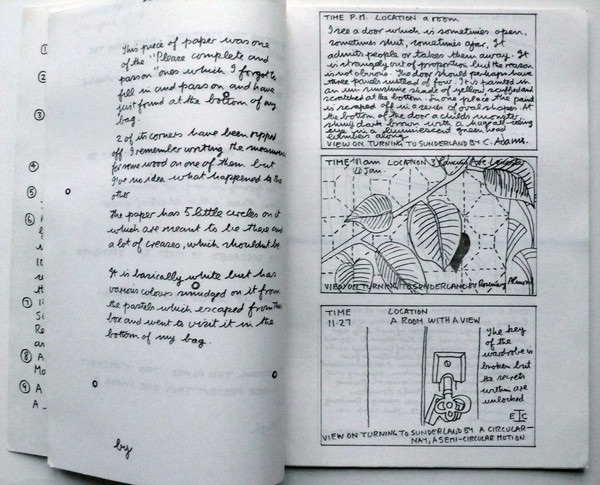 ①
②
③
④
⑤
⑥
⑦
⑧ A
⑨ A
A
This piece of paper was one
of the "Please complete and
pass on" ones which I forgot to
fill in and pass on and have
just found at the bottom of my
bag.
2 of its corners have been ripped
off. I remember writing the
for some wood on one of them but
I've no idea what happened to the
other
The paper has 5 little circles on it
which are meant to be there and
a lot of creases, which shouldn't be
It is basically white but has
various colours smudged on it from
the pastels which escaped from the
box and went to visit it in the
bottom of my bag.
by
TIME P.M. LOCATION a room
I see a door which is sometimes open,
sometimes shut, sometimes ajar. It
admits people or takes them away. It
is strangely out of proportion but the reason
is not obvious. The door should perhaps have
three panels instead of four. It is painted in
an un-sunshine shade of yellow, scuffed and
scratched at the bottom. In one place the paint
is scraped off in a series of oval shapes. At
the bottom of the door a childs monster,
shiny dark brown with a
eye in a luminescent green head
climbers along
VIEW ON TURNING TO SUNDERLAND BY C. Adams.
TIME 11am LOCATION 3
Jan.
VIEW ON TURNING TO SUNDERLAND BY Rosemary
TIME LOCATION
11-27 A ROOM WITH A VIEW
The key
of the
wardrobe is
broken but
the secrets
within are
unlocked
VIEW ON TURNING TO SUNDERLAND BY A CIRCULAR-
NAY, A SEMI-CIRCULAR MOTION